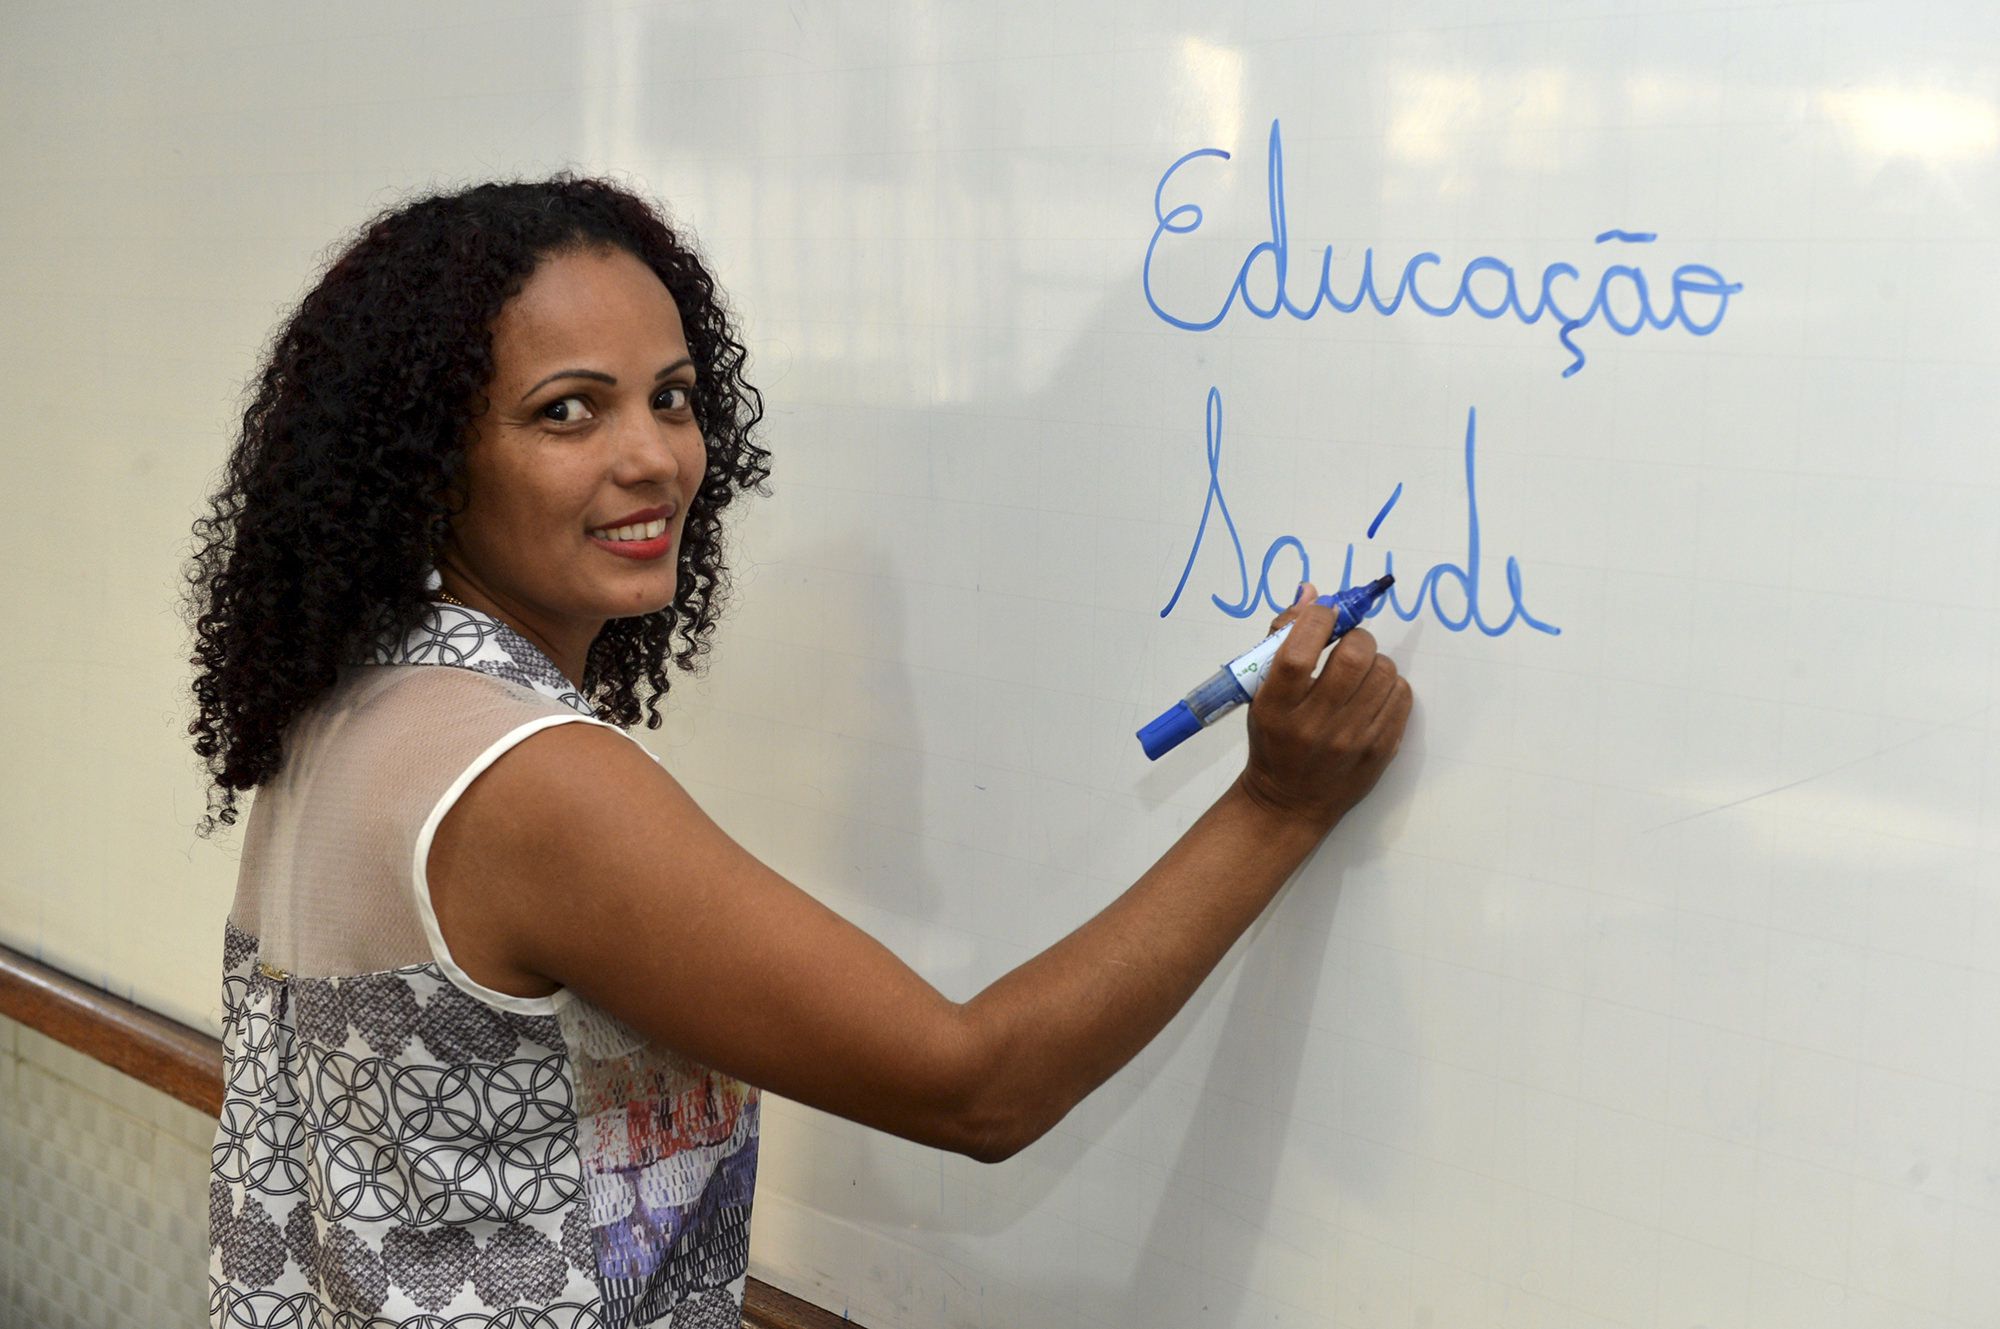 Educação
Saúde